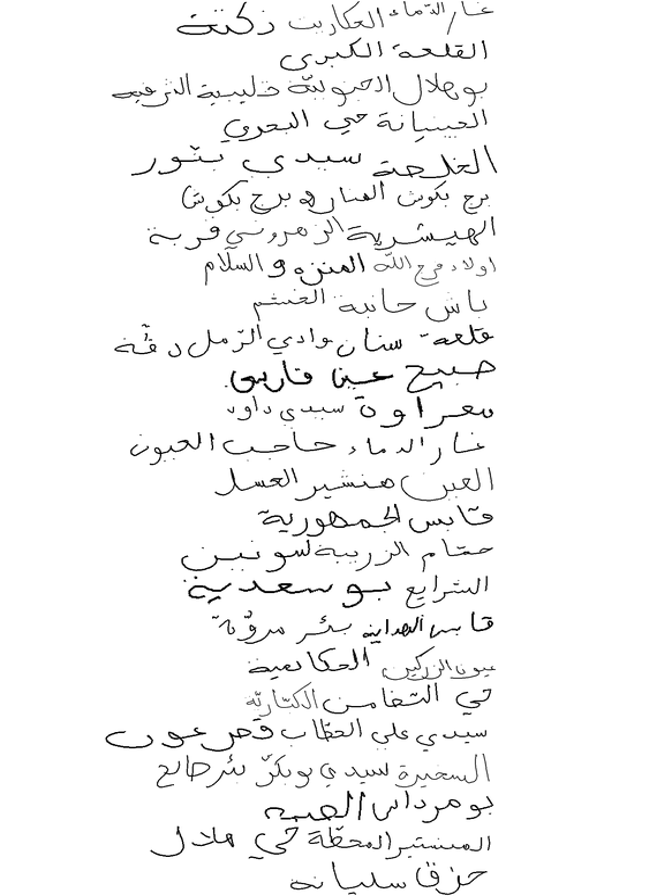 غار الدّماء العكاريت ذكتة
القلعة الكبرى
بوهلال الجنوبيّة قليبية الشرقية
العينيانة حي البحري
الخلجة سيدي بنّور
برج بكوش المنارة برج بكوش
الهيشرية الزهروني قربة
اولاد فرج الله المنزه و السلام
باش حانبة الغنتم
قلعة سنان وادي الرّمل دقّة
صبيح عين قارصي
معراوة سيدي داود
غار الدماء حاجب العيون
العين هنشير العسل
قابس الجمهورية
حمّام الزريبة لسونين
الشرايع بوسعدية
قابس الهداية بئر مروّة
عيون الزركين الحكايمية
حي التضامن الكتاريّة
سيدي علي الحطّاب قصر عون
السخيرة سيدي بوبكرّ بئر صالح
بومرداس الهبيه
المنستير المحطّة حي هلال
حزق سليانة